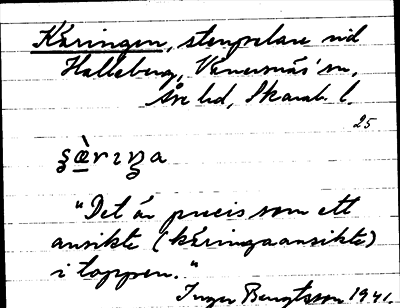 Käringen, stenpelare vid
Halleberg, Vänersnäs sn,
Åse hd, Skarab. l.
25
"Det är precis som ett
ansikte (käringaansikte)
i toppen."
Inger Bengtsson 1941.